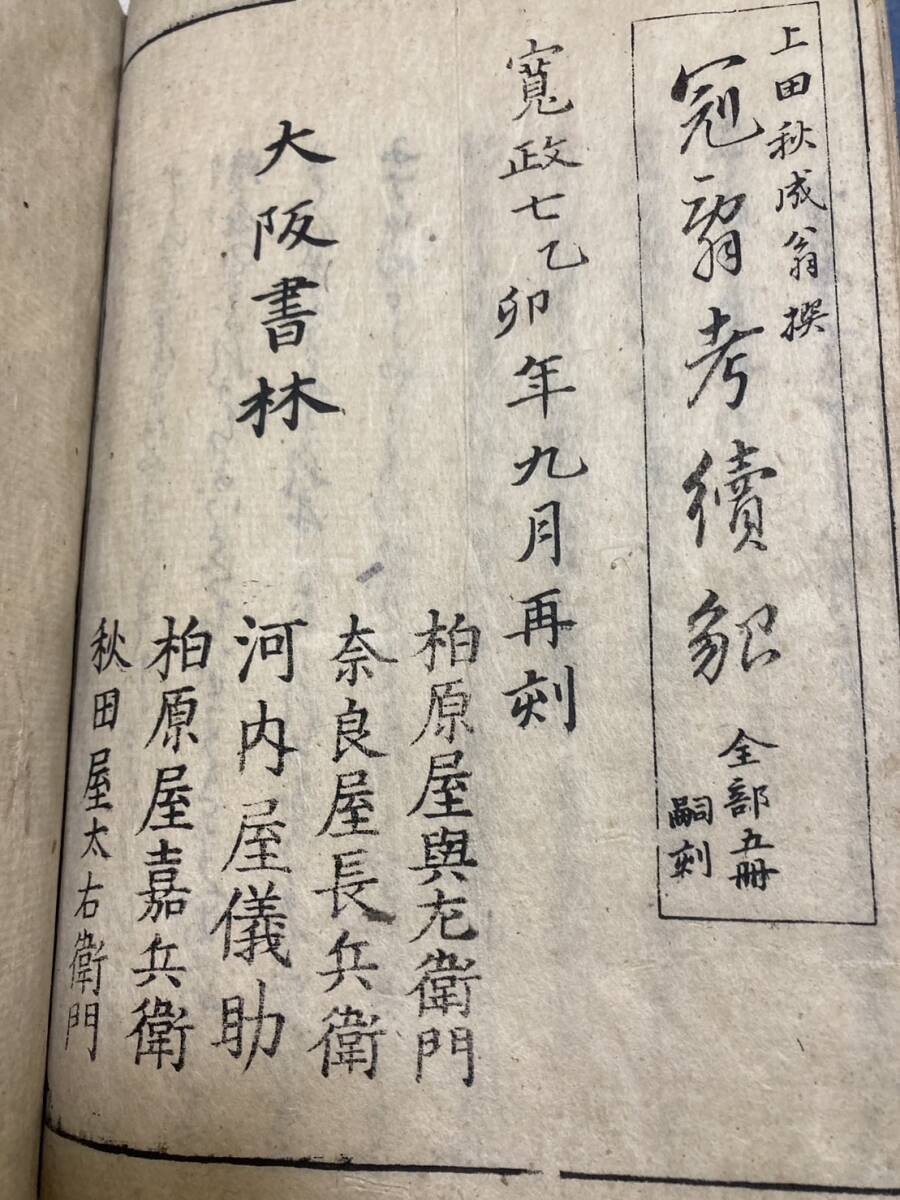 上田秋成翁撰
冠辞考續貂
全部五冊
嗣刻
寛政七乙卯年九月再刻
大阪書林
柏原屋與左衛門
奈良屋長兵衛
河内屋儀助
柏原屋嘉兵衛
秋田屋太右衛門